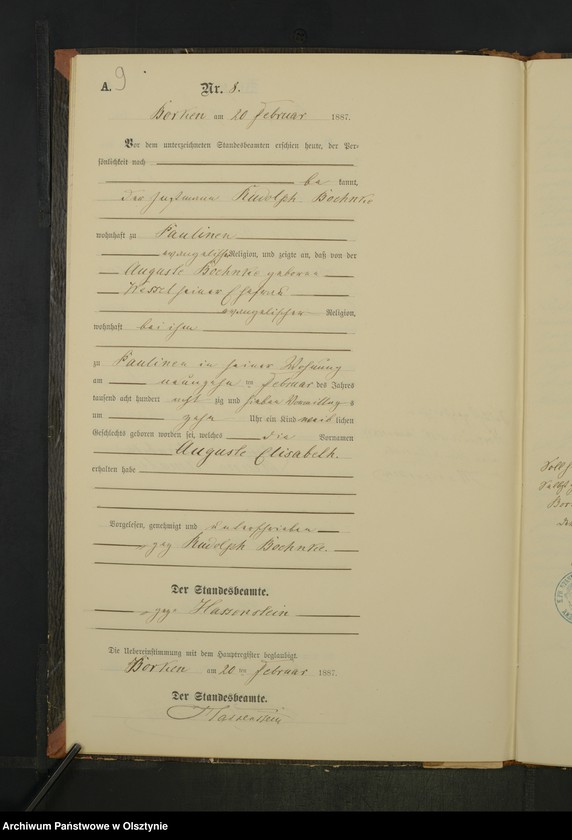 A. 9
Nr. 8.
Borken am 20 Februar 1887.
Vor dem unterzeichneten Standesbeamten erschien heute, der Per-
sönlichkeit nach
be kannt,
der Rudolph Boehnke
wohnhaft zu Paulinen
evangelischer Religion, und zeigte an, daß von der
Auguste Boehnke geborene
Wessel seiner Ehefrau
evangelischer Religion,
wohnhaft bei ihm
zu Paulinen in seiner Wohnung
am neunzehn ten Februar des Jahres
tausend acht hundert acht zig und sieben Vormittag s
um zehn Uhr ein Kind weib lichen
Geschlechts geboren worden sei, welches die Vornamen
Auguste Elisabeth.
erhalten habe
Vorgelesen, genehmigt und unterschrieben
gez Rudolph Boehnke.
Der Standesbeamte.
gez. Hassenstein
Die Uebereinstimmung mit dem Hauptregister beglaubigt.
Borken am 20 ten Februar 1887.
Der Standesbeamte.
Hassenstein
Archiwum Państwowe w Olsztynie